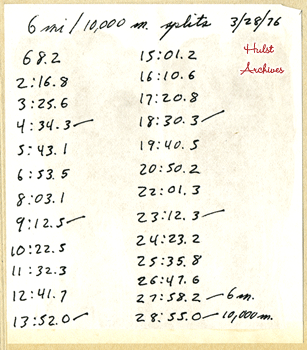 6 mi/10,000 m. splits 3/28/76
Hulst
Archives
68.2
2:16.8
3:25.6
4:34.3
5:43.1
6:53.5
8:03.1
9:12.5
10:22.5
11:32.3
12:41.7
13:52.0
15:01.2
16:10.6
17:20.8
18:30.3
19:40.5
20:50.2
22:01.3
23:12.3
24:23.2
25:35.8
26:47.6
27:58.2 — 6 m.
28:55.0 — 10,000 m.